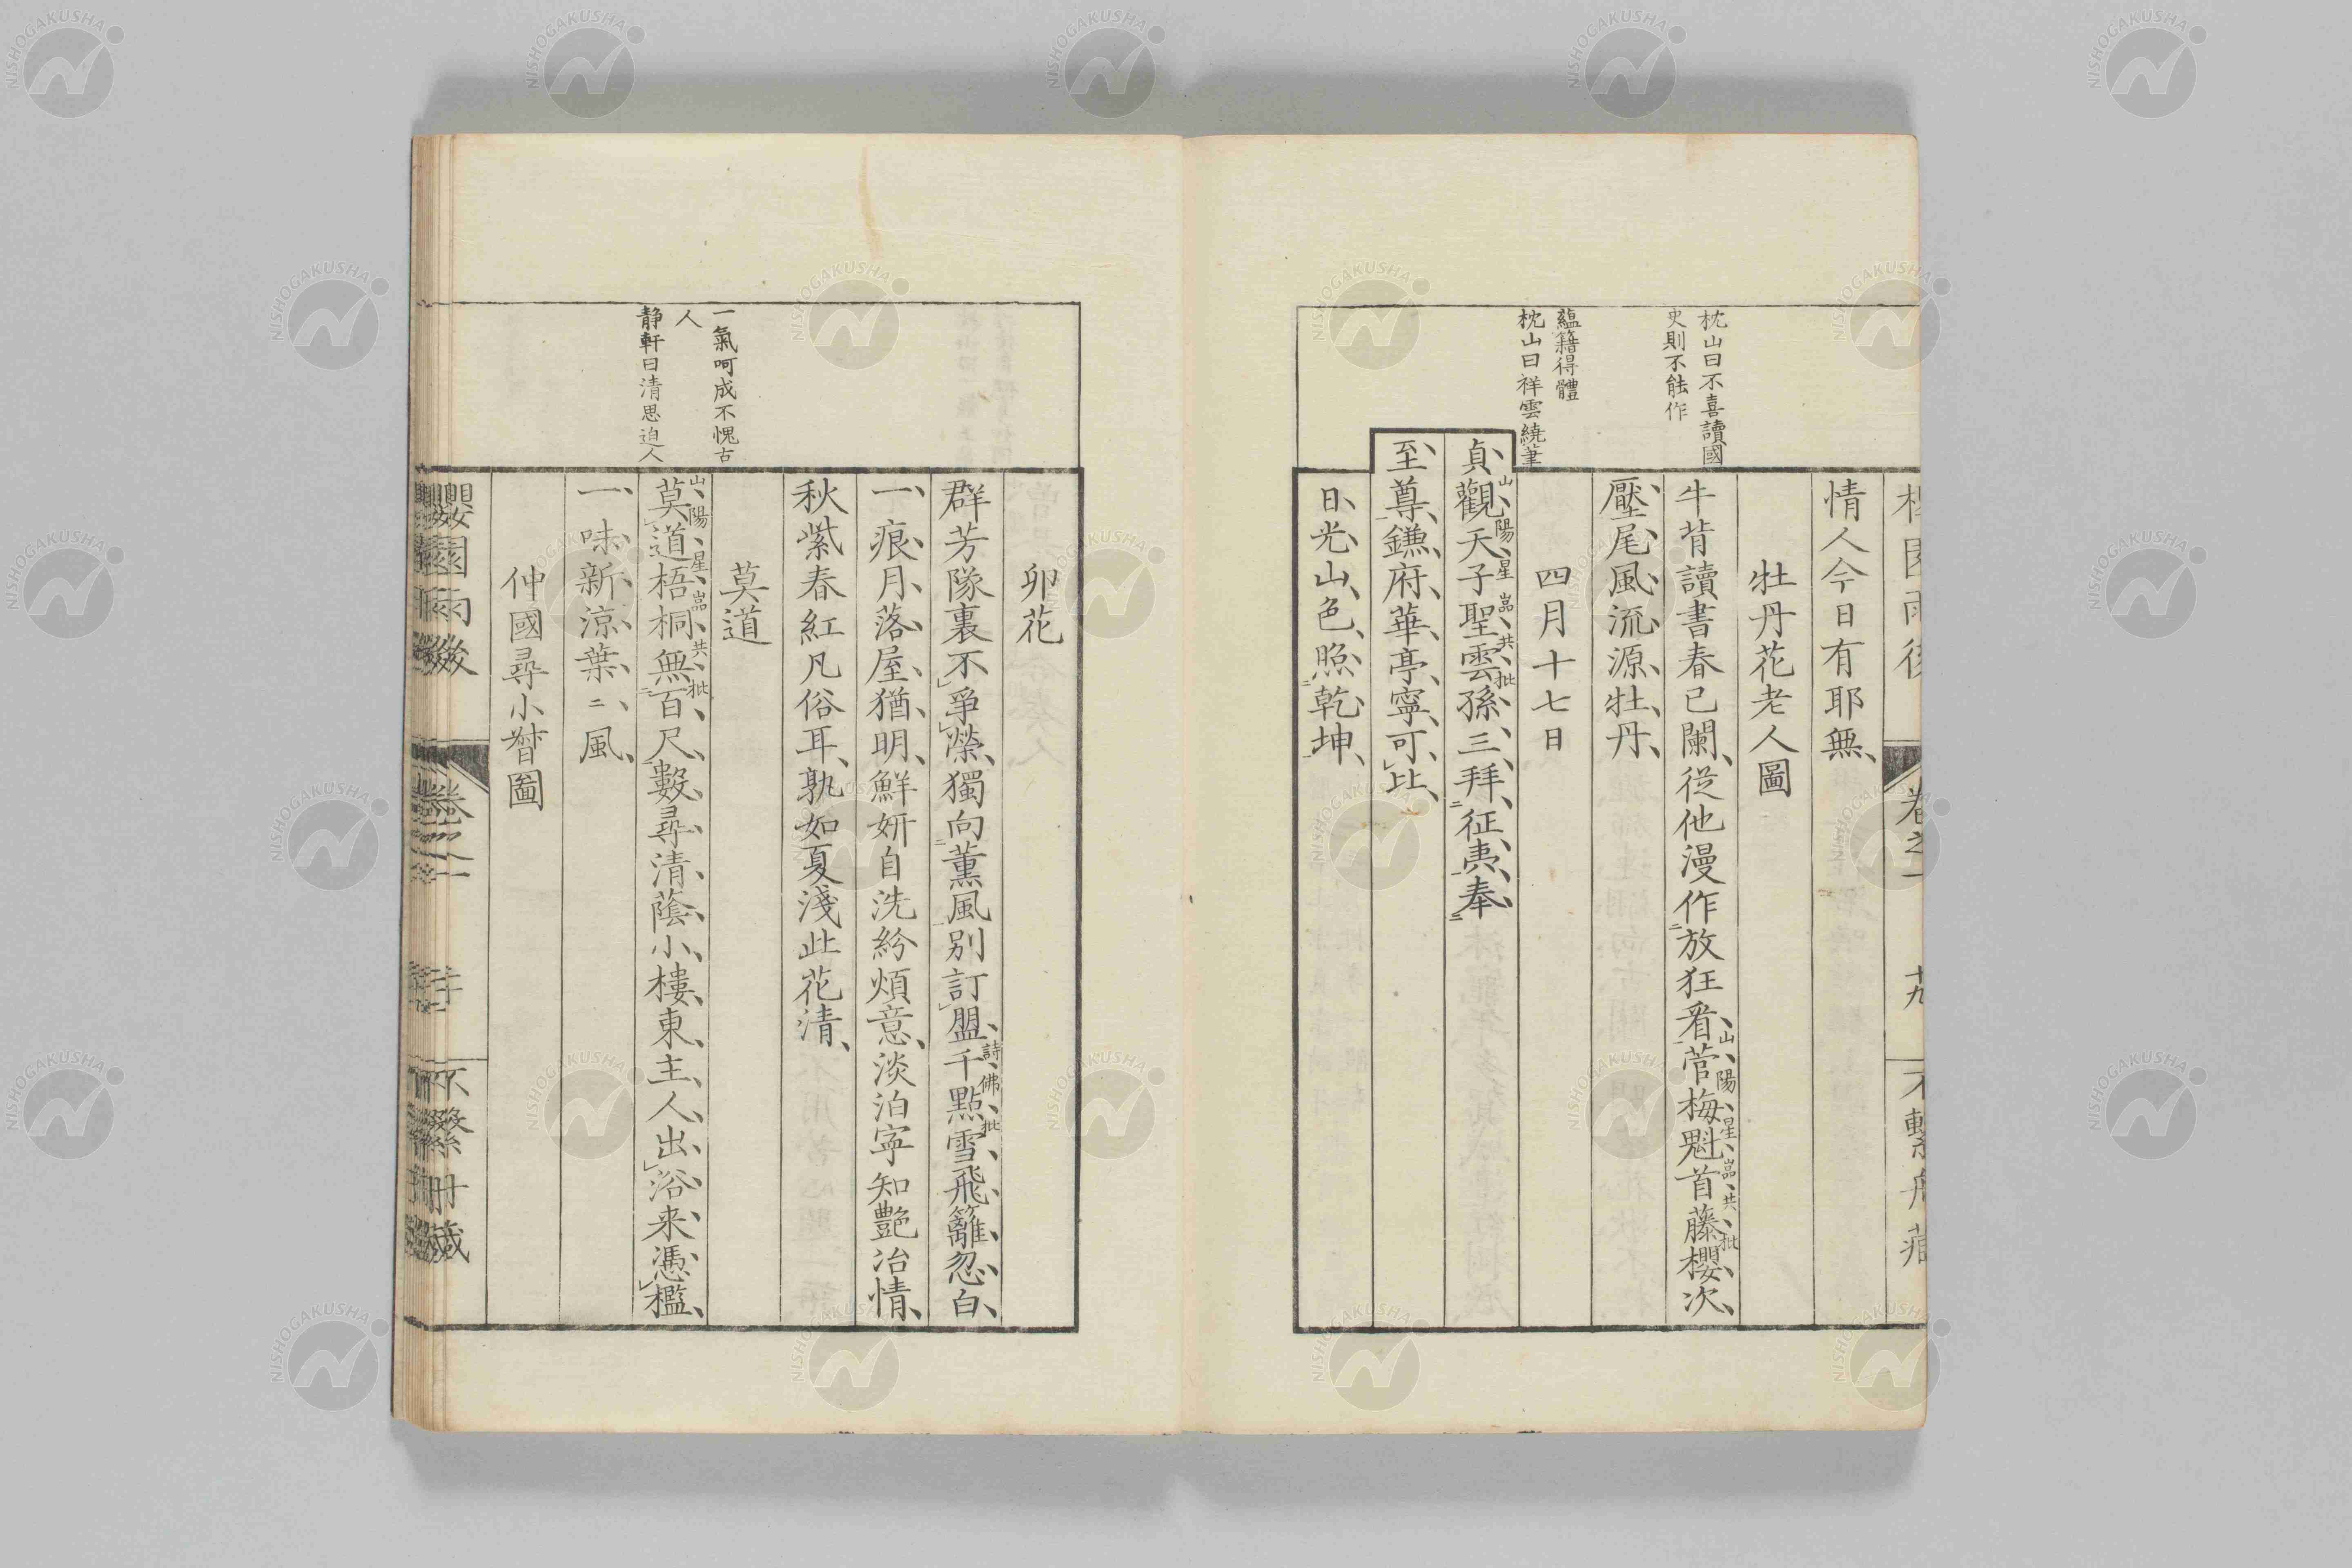 枕山曰不喜讀國
史則不能作
蘊籍得體
枕山曰祥雲繞筆
卷之一
十九
情人今日有耶無
牡丹花老人圖
牛背讀書春已闌從他漫作放狂看菅梅魁首藤櫻次
山陽星嵓共批
壓尾風流源牡丹
四月十七日
貞觀天子聖雲孫三拜征夷奉
山陽星嵓共批
至尊鎌府華亭寧可比
日光山色照乾坤
一氣呵成不愧古
人
静軒曰清思迫人
卯花
群芳隊裏不爭榮獨向薫風別訂盟千點雪飛籬忽白
詩佛批
一痕月落屋猶明鮮妍自洗紛煩意淡泊寧知艷冶情
秋紫春紅凡俗耳孰如夏淺此花清
莫道
莫道梧桐無百尺數尋清蔭小樓東主人出浴来憑檻
山陽星嵓共批
一味新涼葉二風
仲國尋小督圖